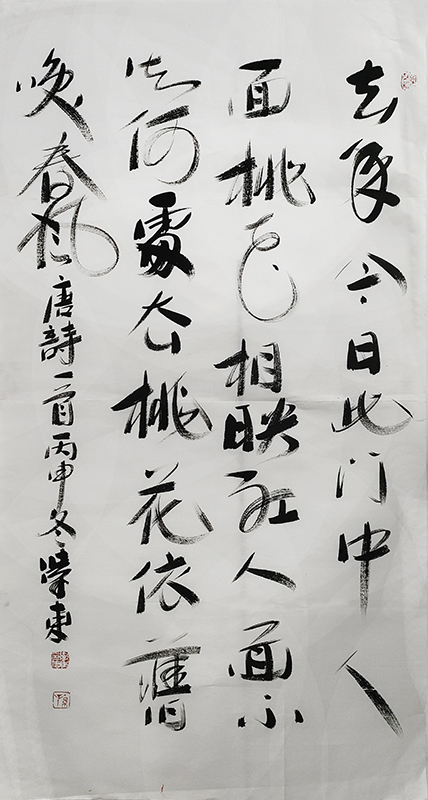 去年今日此门中人
面桃花相映红人面不
知何處去桃花依舊
咲春风
唐詩一首丙申冬